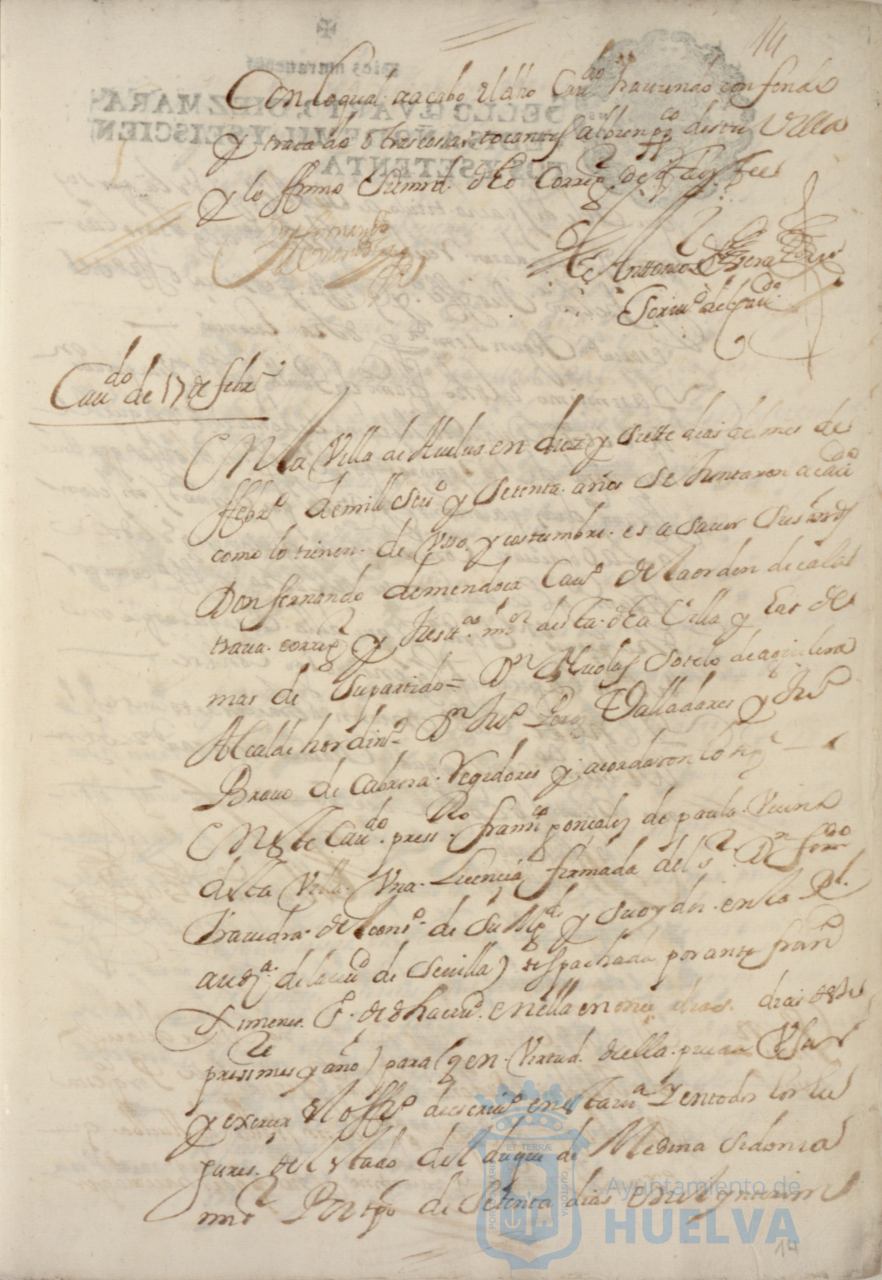 14
Con lo qual se acabo el dho Cau.do haviendo conferido
y tratado otras cosas tocantes al bien pco desta Villa
y lo firmo Su md. dho Correg.r de q doy fee
Antonio
Scriu.o del Cau.do
Cau.do de 17 de febr.o
En la Villa de Huelua en diez y siete dias del mes de
ffebr.o de mill seis.o y setenta años se Juntaron a cau.do
como lo tienen de Vso y costumbre es a sauer sus mrds
Don fernando de mendoza Cau.o de la orden de cala
traua correg.r y Justa.as m.or desta dha Villa y las de
mas de su partido = D.n Nicolas Sotelo de aguilera
Alcalde hordin.o D.n Ju.o Ponz Valladares y Ju.o
Brauo de Cabrera Regidores y acordaron lo sig.te
En este Cau.do press.to fran.co gonzales de paula Vecino
desta Villa Vna Licencia firmada del s.r D.n fer.do
trauedra del cons.o de Su Mg.d y su oydor en la R.l
aud.a de la ciu.d de Seuilla despachada por ante fran.co
Ximenez en ella en onze dias deste
press.te mes y año para q en Virtud della pueda Vsar
y exerzer el off.o de escriu.o en esta Villa y en todos los lu
gares del estado del duque de Medina Sidonia
mi s.r Por tpo de Setenta dias en el ynterim
Ayuntamiento de
HUELVA
14